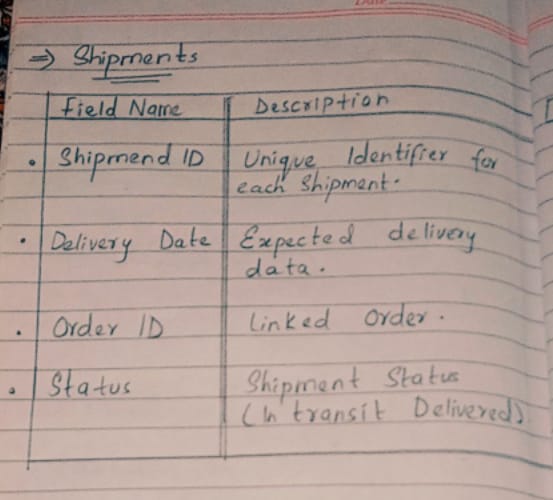 ⇒ Shipments
Field Name Description
• Shipmend ID Unique Identifier for
each Shipment.
• Delivery Date Expected delivery
data.
• Order ID Linked Order.
• Status Shipment Status
(In transit Delivered)